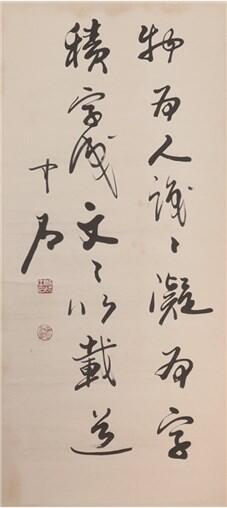 物為人識〻凝為字
積字成文〻以載道
中石